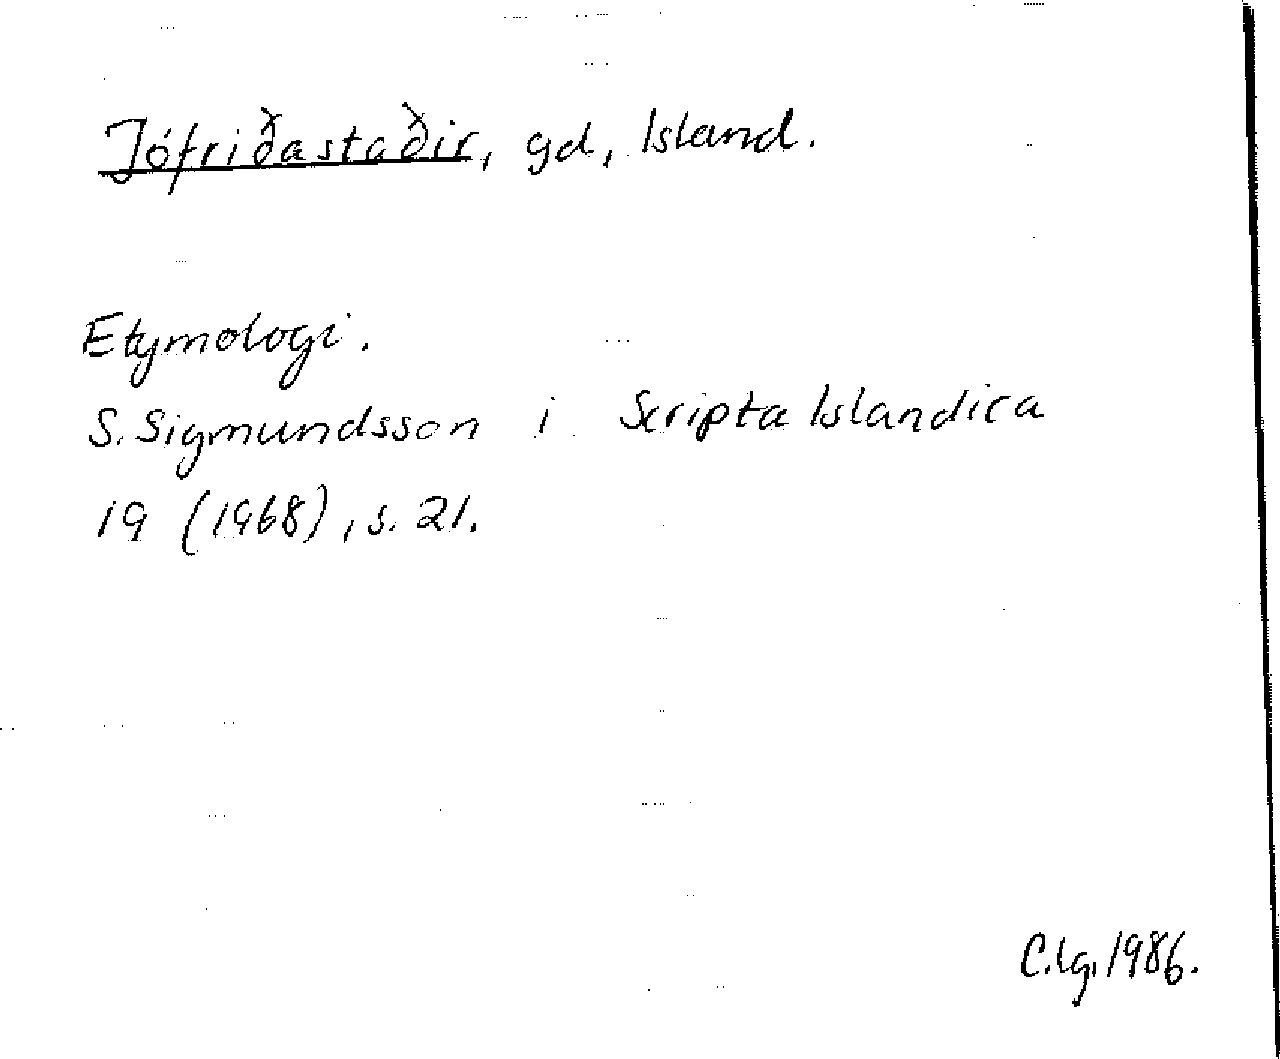 Jófriðastaðir, gd, Island.
Etymologi.
S. Sigmundsson i Scripta Islandica
19 (1968), s. 21.
C.Ig. 1986.